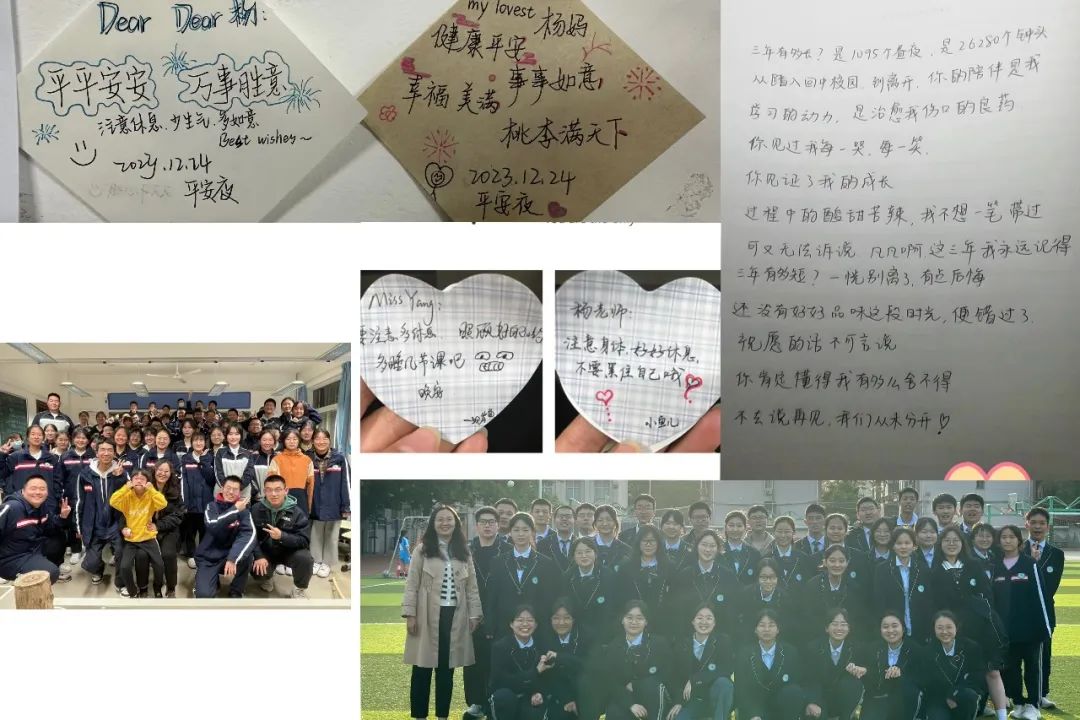 Dear Dear 杨:
平平安安 万事胜意
注意休息,少生气,多如意
Best wishes~
2023.12.24
平安夜
my lovest 杨妈
健康平安
幸福美满 事事如意
桃李满天下
2023.12.24
平安夜
三年有多长?是1095个昼夜,是26280个钟头
从踏入回中校园,到离开,你的陪伴是我
学习的动力,是治愈我伤口的良药
你见过我每一哭,每一笑.
你见证了我的成长
过程中的酸甜苦辣,我不想一笔带过
可又无法诉说.凡凡啊,这三年我永远记得
三年有多短?一恍别离了,有点后悔
还没有好好品味这段时光,便错过了.
祝愿的话不可言说
你肯定懂得我有多么舍不得
不去说再见,我们从未分开
Miss Yang:
要注意多休息 照顾好自己
多睡几节课吧
晚安
杨老师:
注意身体,好好休息,
不要累住自己哦
小鱼儿